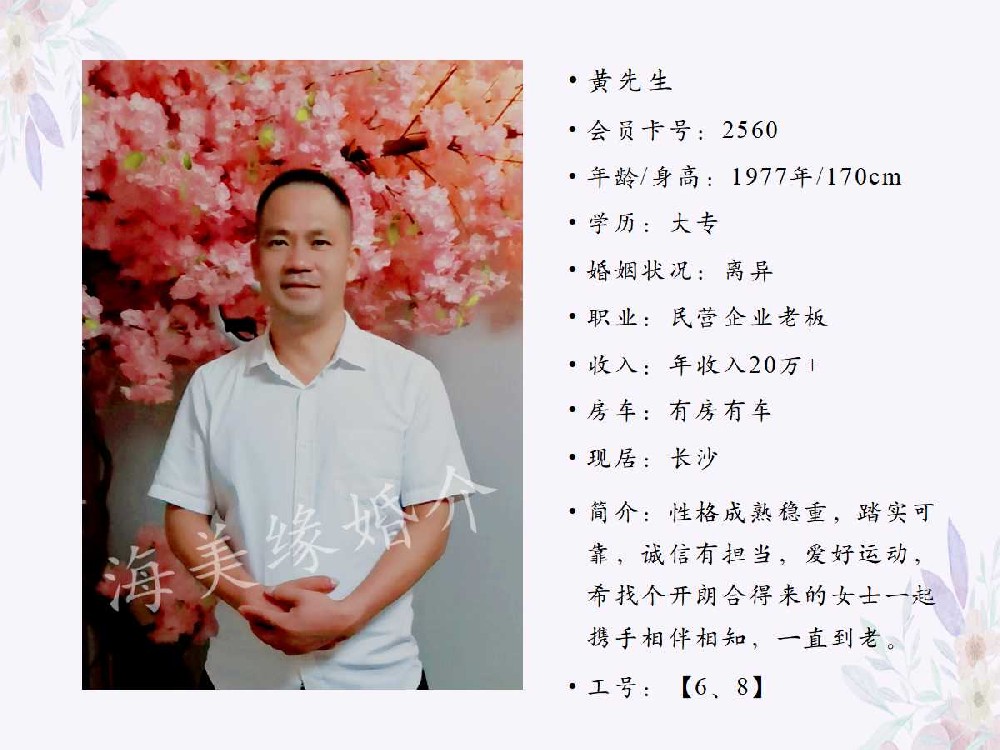 海美缘婚介
• 黄先生
• 会员卡号：2560
• 年龄/身高：1977年/170cm
• 学历：大专
• 婚姻状况：离异
• 职业：民营企业老板
• 收入：年收入20万+
• 房车：有房有车
• 现居：长沙
• 简介：性格成熟稳重，踏实可
靠，诚信有担当，爱好运动，
希找个开朗合得来的女士一起
携手相伴相知，一直到老。
• 工号：【6、8】